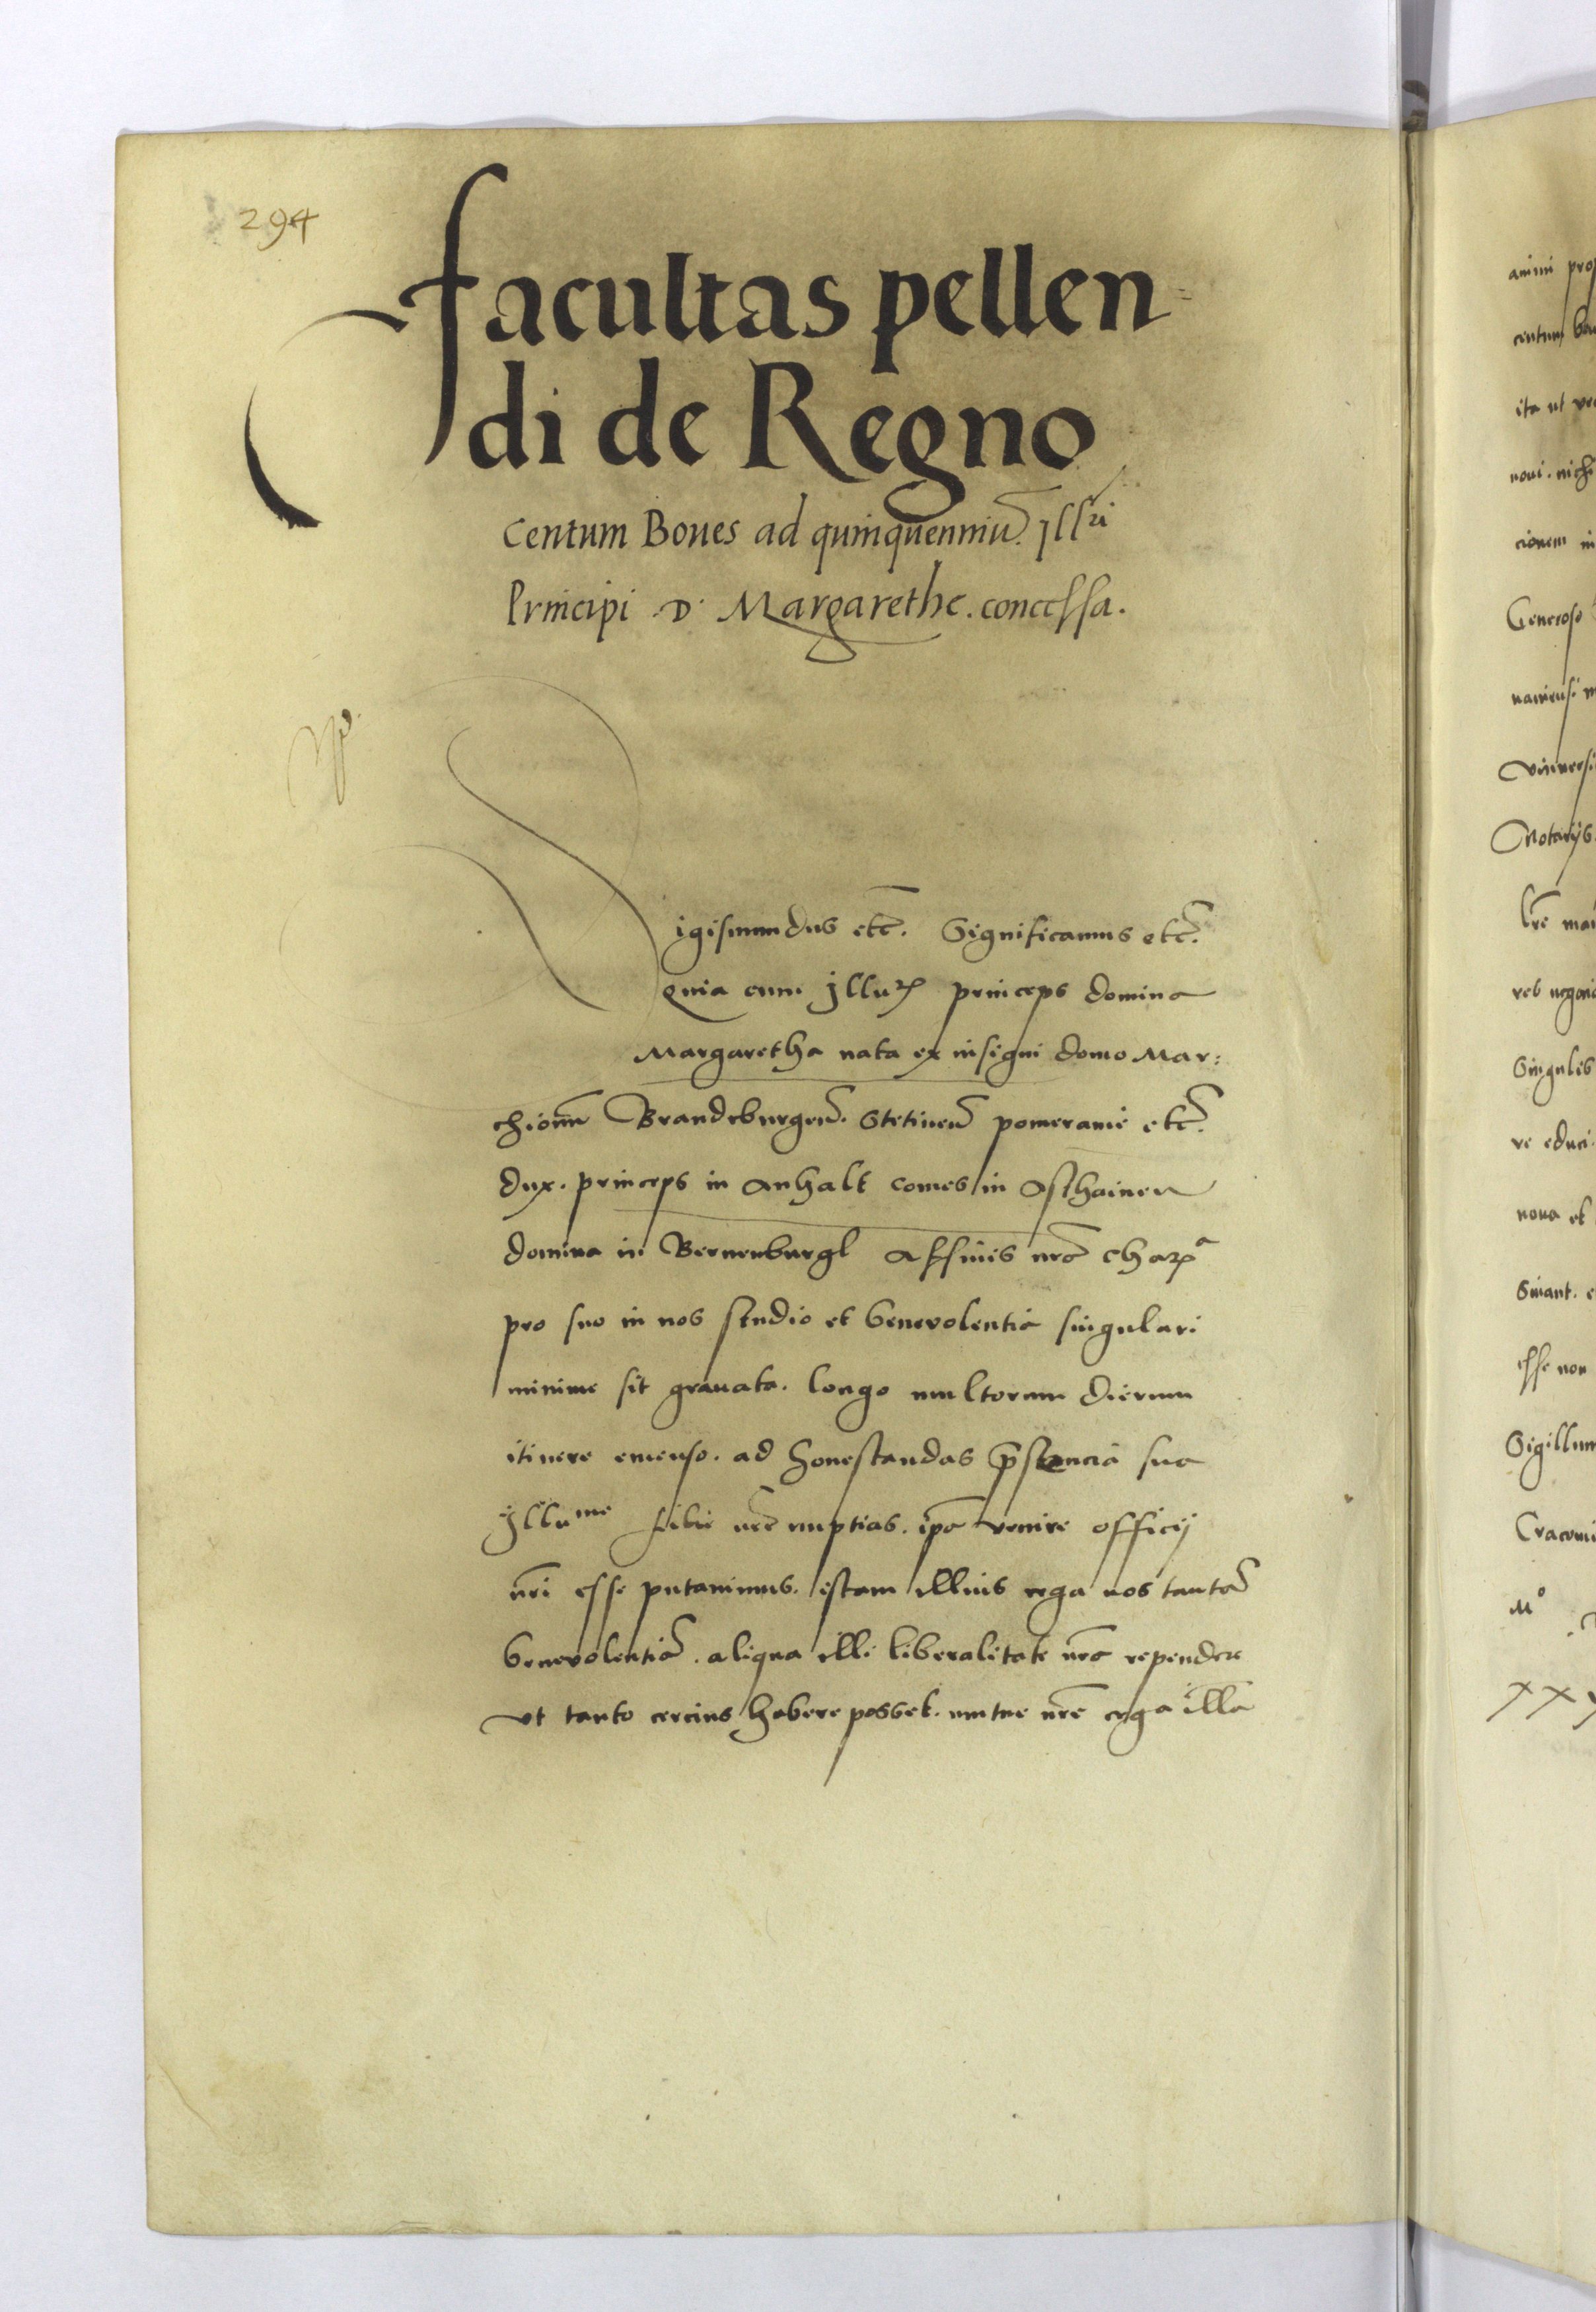 294
facultas pellen=
di de Regno
Centum Boues ad quinquenniu. Jllri
Principi .D. Margarethe. concessa.
Sigismundus etc. Significamus etc.
quia cum Jllu princeps domina
Margaretha nata ex insigni domo Mar:
chionum Brandeburgen. Stetinen pomeranie etc.
dux. princeps in Anhalt comes in Aschainen
domina in Bernenburgk Affinis nra chara
pro suo in nos studio et beneuolentia singulari
minime sit grauata. longo multorum dierum
itinere emenso. ad honestandas pstencia sua
Jllume filie nre nuptias. ipa venire officij
nri esse putauimus. istam illius erga nos tanta
beneuolentia. aliqua illi liberalitate nra rependere
vt tanto cercius habere posset. mutue nre erga illa
animi pro
centum bou
ita ut
noui. nich
cionem in
Generoso
uniuersi
Notarijs.
lre
negoci
Singulis
re educi.
noua et
esse non
Sigillum
Cracoui
Mo